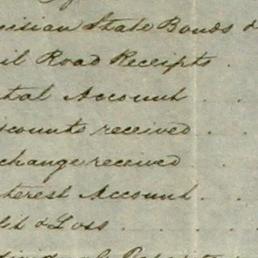 isian State Bonds &
il Road Receipts .
tal Account . .
scounts received . .
change received
terest Account . .
it & Loss . . . .